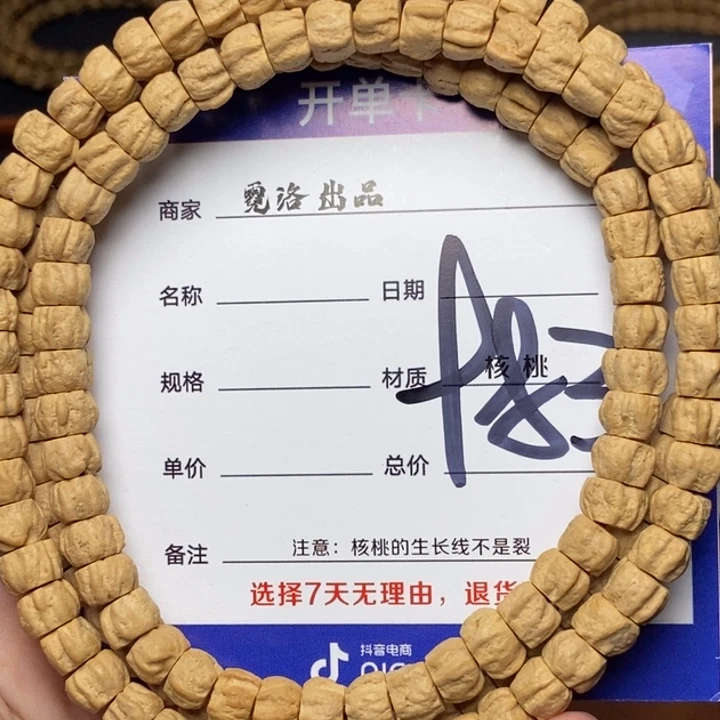 开单卡
商家 霓洛出品
名称 日期
规格 材质 核桃
单价 总价
备注 注意：核桃的生长线不是裂
选择7天无理由，退货
抖音电商